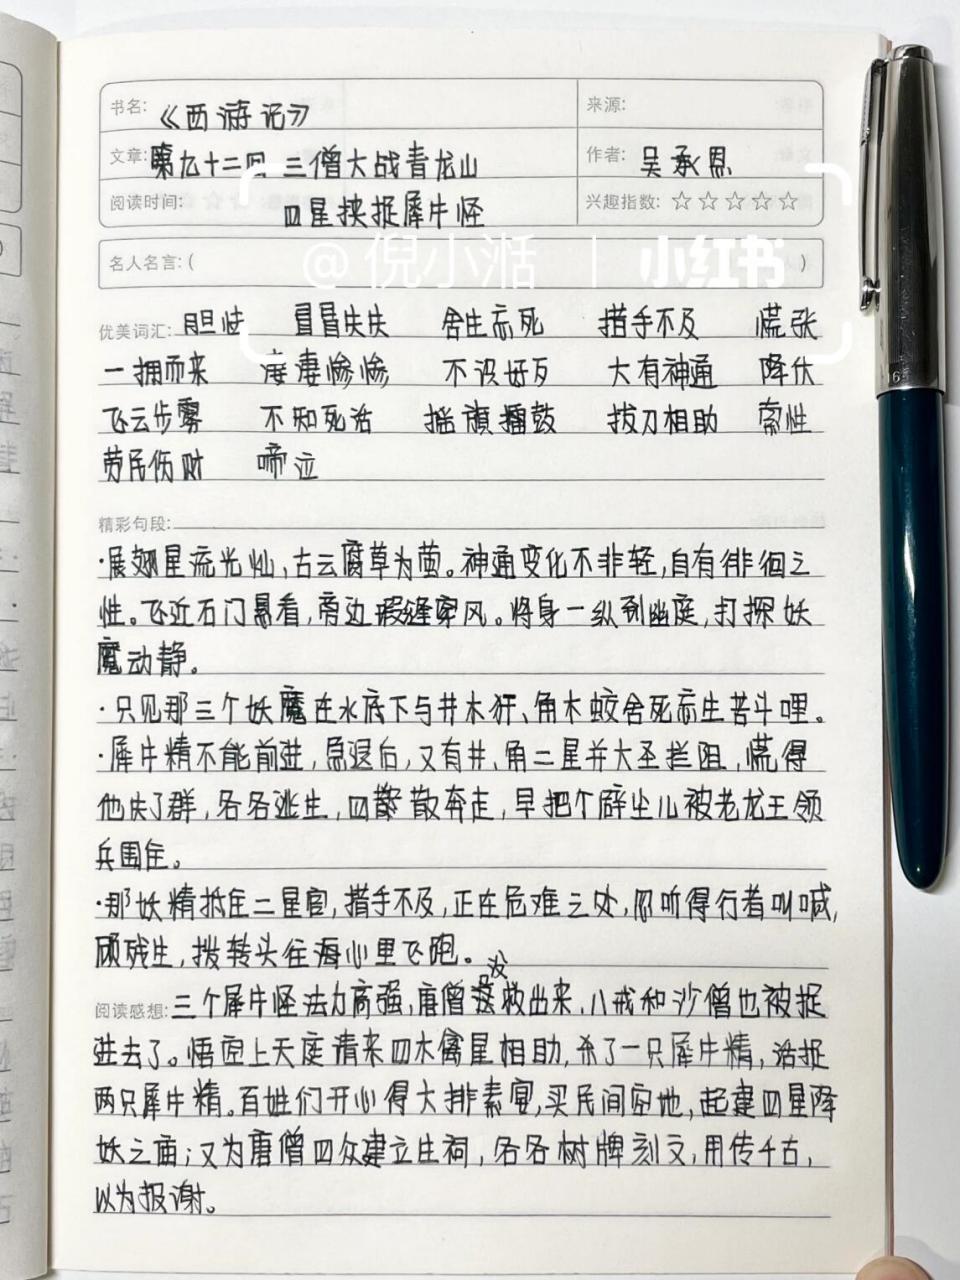 书名:《西游记》
来源:
文章:第九十二回 三僧大战青龙山
作者: 吴承恩
阅读时间: 四星挟捉犀牛怪
兴趣指数:☆☆☆☆☆
@倪小湉 | 小红书
名人名言:( )
优美词汇: 胆怯 冒冒失失 舍生忘死 措手不及 慌张
一拥而来 凄凄惨惨 不识好歹 大有神通 降伏
飞云步雾 不知死活 摇旗擂鼓 拔刀相助 索性
劳民伤财 啼泣
精彩句段:
·展翅星流光灿,古云腐草为萤。神通变化不非轻,自有徘徊之
性。飞近石门悬看,旁边瑕缝穿风。将身一纵到幽庭,打探妖
魔动静。
·只见那三个妖魔在水底下与井木犴、角木蛟舍死忘生苦斗哩。
·犀牛精不能前进,急退后,又有井、角二星并大圣拦阻,慌得
他失了群,各各逃生,四散奔走,早把个辟尘儿被老龙王领
兵围住。
·那妖精抵住二星官,措手不及,正在危难之处,忽听得行者叫喊,
顾残生,拨转头往海心里飞跑。
阅读感想:三个犀牛怪法力高强,唐僧没救出来,八戒和沙僧也被捉
进去了。悟空上天庭请来四木禽星相助,杀了一只犀牛精,活捉
两只犀牛精。百姓们开心得大排素宴,买民间空地,起建四星降
妖之庙;又为唐僧四众建立生祠,各各树牌刻文,用传千古,
以为报谢。